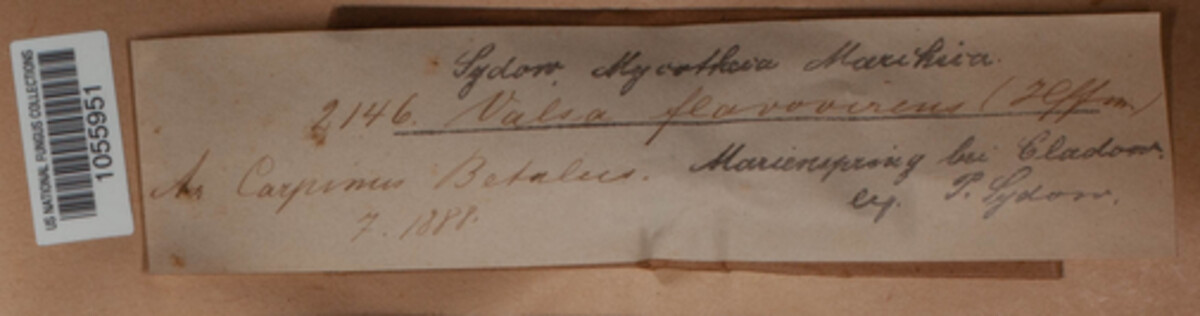 US NATIONAL FUNGUS COLLECTIONS
1055951
Sydow Mycotheca Marchica.
2146. Valsa flavovirens (Hffm.)
An Carpinus Betulus. Marienspring bei Cladow.
7. 1888. leg. P. Sydow.